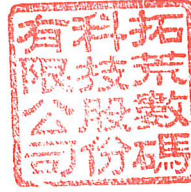 拓荒數碼
科技股份
有限公司